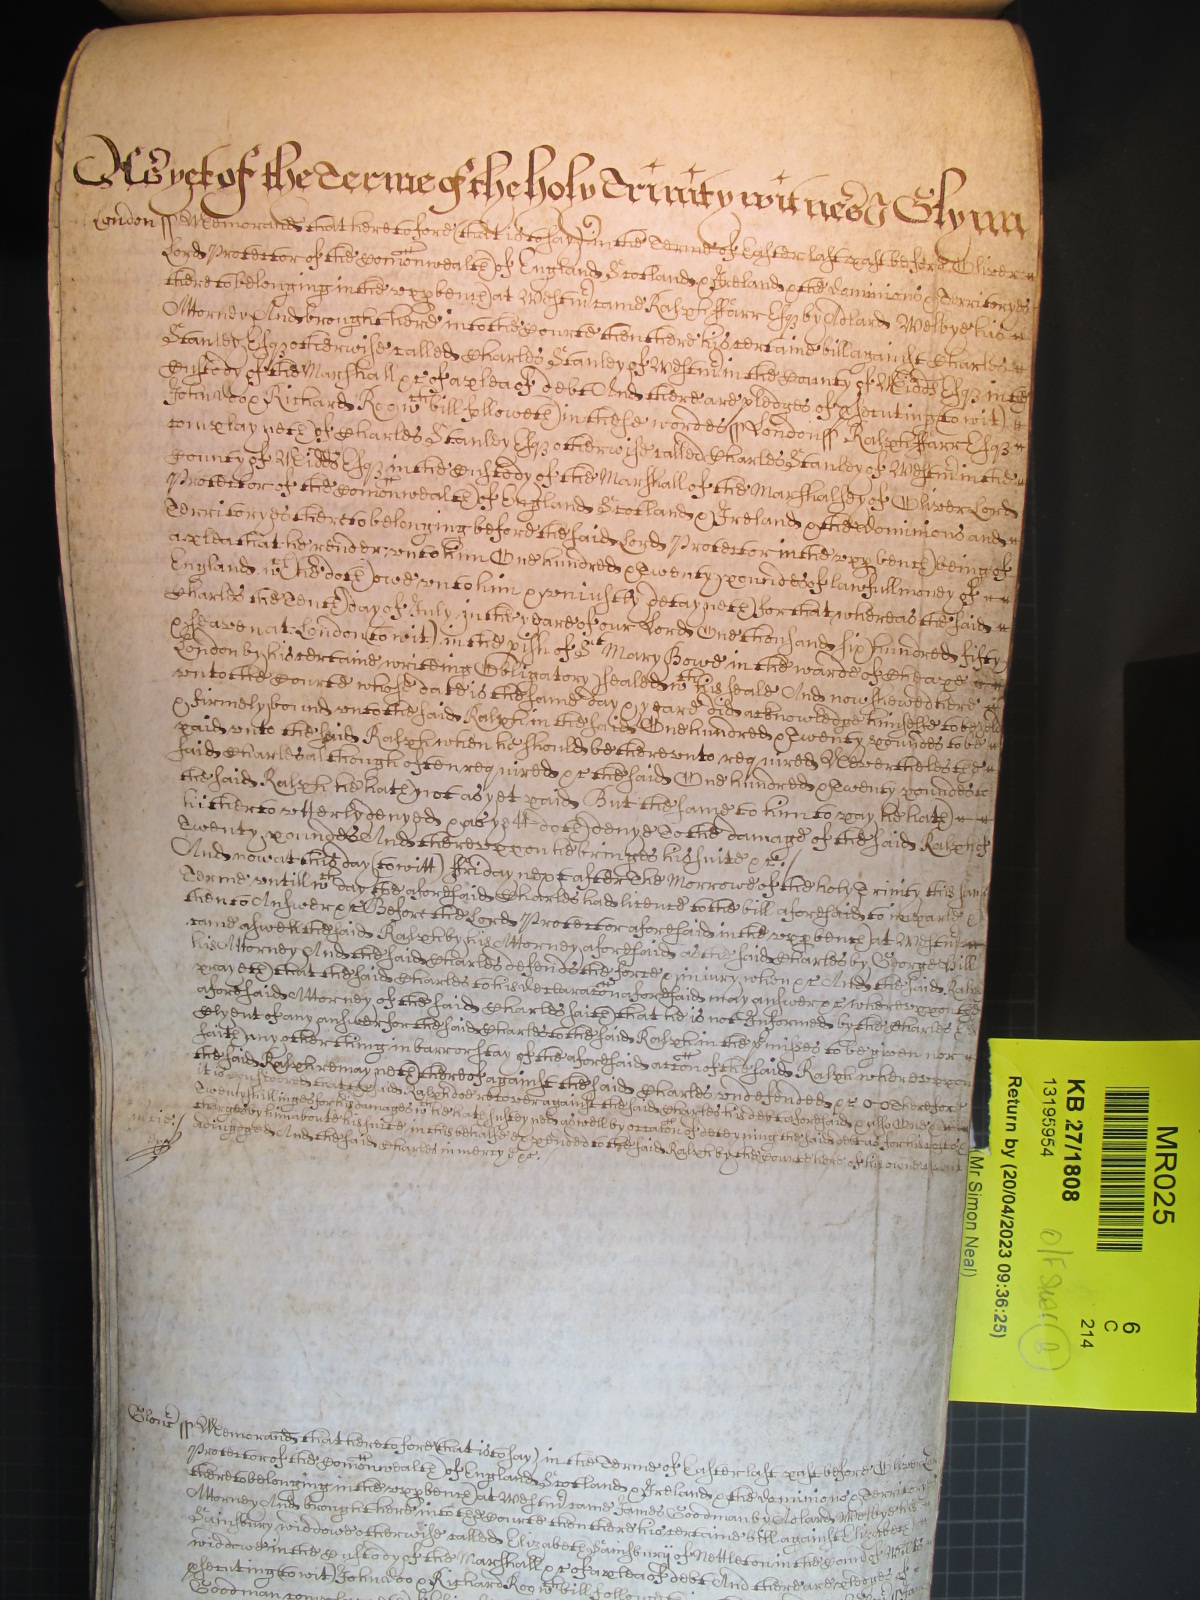 As yet of the Terme of the holy Trinity witnes J Glynn
London ss Memorand that heretofore (that is to say) in the Terme of Easter last past before Oliver
Lord Protector of the Comonwealth of England Scotland & Ireland & the dominions & Territoryes
thereto belonging in the upp bench at Westmr came Ralph Farr Esqr by Adlard Welbye his
Attorney And brought here into the Courte then there his certaine bill against Charles
Stanley Esqr otherwise called Charles Stanley of Westmr in the County of Midds Esqr in the
Custody of the Marshall &c of a plea of debt And there are pledges of p'secuting (to wit)
John Doo & Richard Roo wch bill followeth in these wordes ss London ss Ralph Farr Esqr
complayneth of Charles Stanley Esqr otherwise called Charles Stanley of Westmr in the
County of Midds Esqr in the Custody of the Marshall of the Marshalsey of Oliver Lord
Protector of the Comonwealth of England Scotland & Ireland & the dominions and
Territoryes thereto belonging before the said Lord Protector in the upp bench being of
a plea that he render unto him One hundred & Twenty poundes of lawfull money of
England wch he doth owe unto him & uniustly detayneth for that whereas the said
Charles the Tenth day of July in the yeare of our Lord One thousand six hundred fifty
& seaven at London (to wit) in the pish of St Mary Bowe in the warde of Cheape
London by his certaine writeing Obligatory sealed wth his seale And now shewed here
unto the Courte whose date is the same day & yeare did acknowledge himselfe to be held
& firmely bound unto the said Ralph in the said One hundred & Twenty poundes to be
paid unto the said Ralph when he should be thereunto required Neverthelesse the
said Charles although often required &c the said One hundred & Twenty poundes to
the said Ralph he hath not as yet paid But the same to him to pay he hath
hitherto utterly denyed & as yett doth denye To the damage of the said Ralph of
Twenty poundes And thereuppon he bringes his suite &c /
And now at this day (to witt) Friday next after The Morrowe of the holy Trinity this same
Terme untill wch day the aforesaid Charles had licence to the bill aforesaid to imparle &
then to Answer &c Before the Lord Protector aforesaid in the upp bench at Westmr
came aswell the said Ralph by his Attorney aforesaid as the said Charles by George Bill
his Attorney And the said Charles defends the force & iniury when &c And the said Ralph
prayeth that the said Charles to his declaracon aforesaid may answer &c whereuppon the
aforesaid Attorney of the said Charles saith that he is not Informed by the Charles his
Clyent of any answer for the said Charles to the said Ralph in the p'mises to be given nor
saith any other thing in barr or stay of the aforesaid accon of the said Ralph whereuppon
the said Ralph remayneth thereof against the said Charles undefended &c Therefore
it is Considered that the said Ralph doe recover against the said Charles his debt aforesaid & also One &
Twenty shillinges for his damages wch he hath susteyned aswell by occasion of deteyning the said debt as for his costes &
charges by him about his suite in this behalfe expended to the said Ralph by the Courte here of his owne assent
adiudged And the said Charles in mercy &c.
m'cie /
Glouc ss Memorand that heretofore (that is to say) in the Terme of Easter last past before Oliver Lord
Protector of the Comonwealth of England Scotland & Ireland & the dominions & Territory
thereto belonging in the upp bench at Westmr came James Goodman by Adlard Welbye his
Attorney And brought here into the Courte then there his certaine bill against Elizabeth
Sainsbury widdowe otherwise called Elizabeth Sainsbury of Nettleton in the County of Wilts
widdowe in the Custody of the Marshall &c of a plea of debt And there are pledges of
p'secuting (to wit) John Doo & Richard Roo wch bill followeth
Goodman
MR025
6
C
214
KB 27/1808
13195954
Return by (20/04/2023 09:36:25)
(Mr Simon Neal)